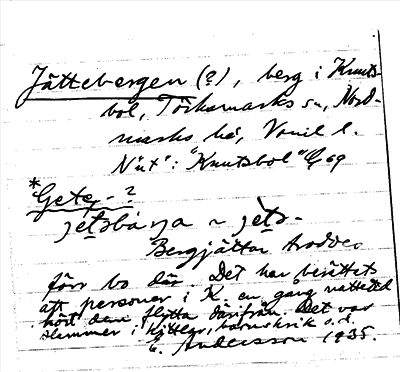 Jättebergen (?), berg i Knuts-
bol, Töcksmarks sn, Nord-
marks hd, Värml. l.
"Knutsbol" 69
*Getes- ?
jètsbárja ~ jèts-
Bergjättar troddes
förr bo där. Det har berättats
att personer i K. en gång nattetid
hört dem flytta därifrån. Det var
slammer i kittlar, barnskrik o.d.
E. Andersson 1935.